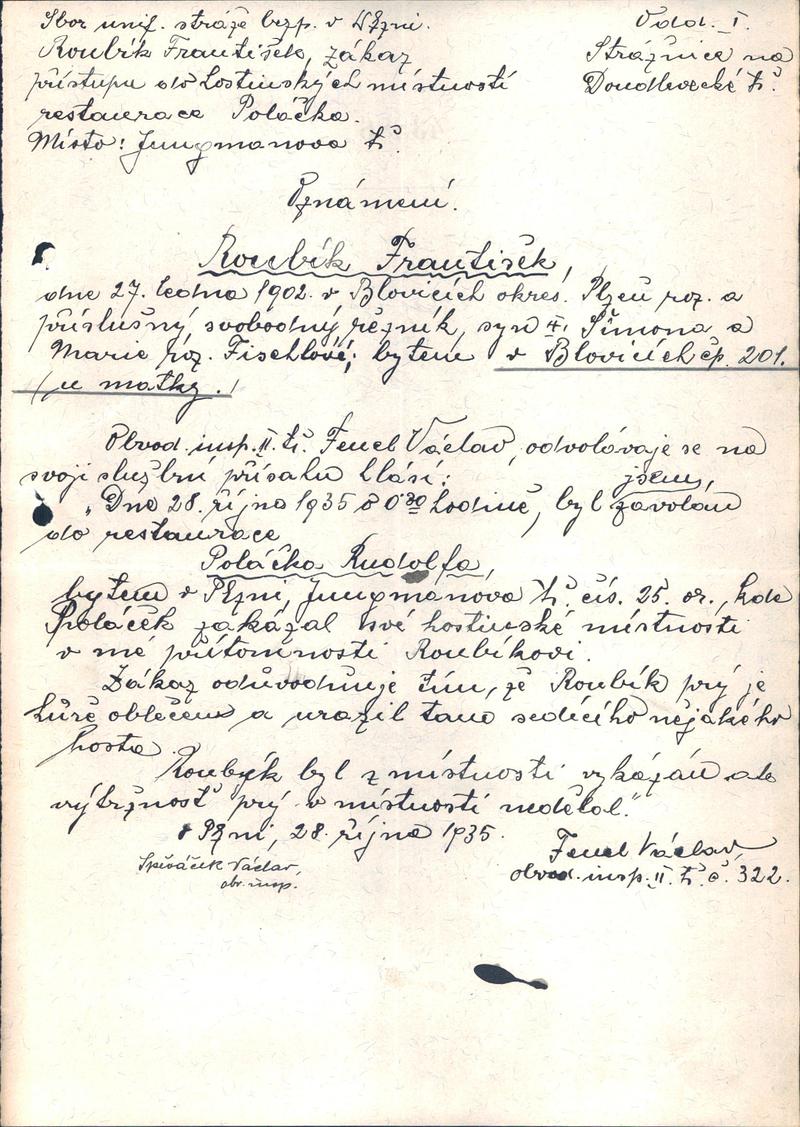 Sbor unif. stráže bezp. v Plzni.
Odd. I.
Roubík František, zákaz
Strážnice na
přístupu do hostinských místností
Doudlevecké tř.
restaurace Poláčka.
Místo: Jungmanova tř.
Oznámení.
Roubík František,
dne 27. ledna 1902. v Blovicích okres. Plzeň roz. a
příslušný svobodný řezník, syn Šimona a
Marie roz. Fischlové; bytem v Blovicích čp. 201.
/u matky./
Obvod. insp. II. tř. Fencl Václav, odvolávaje se na
svoji služební přísahu hlásí:
jsem,
„Dne 28. října 1935 o 0³⁰ hodině, byl zavolán
do restaurace
Poláčka Rudolfa,
bytem v Plzni, Jungmanova tř. čís. 25. or., kde
Poláček zakázal své hostinské místnosti
v mé přítomnosti Roubíkovi.
Zákaz odůvodnuje tím, že Roubík prý je
hůře oblečen a urazil tam sedícího nějakého
hosta.
Roubýk byl z místnosti vykázán ale
výtržnost prý v místnosti nedělal."
v Plzni, 28. října 1935.
Fencl Václav,
Spěváček Václav,
obvod. insp. II. tř. č. 322.
obv. insp.